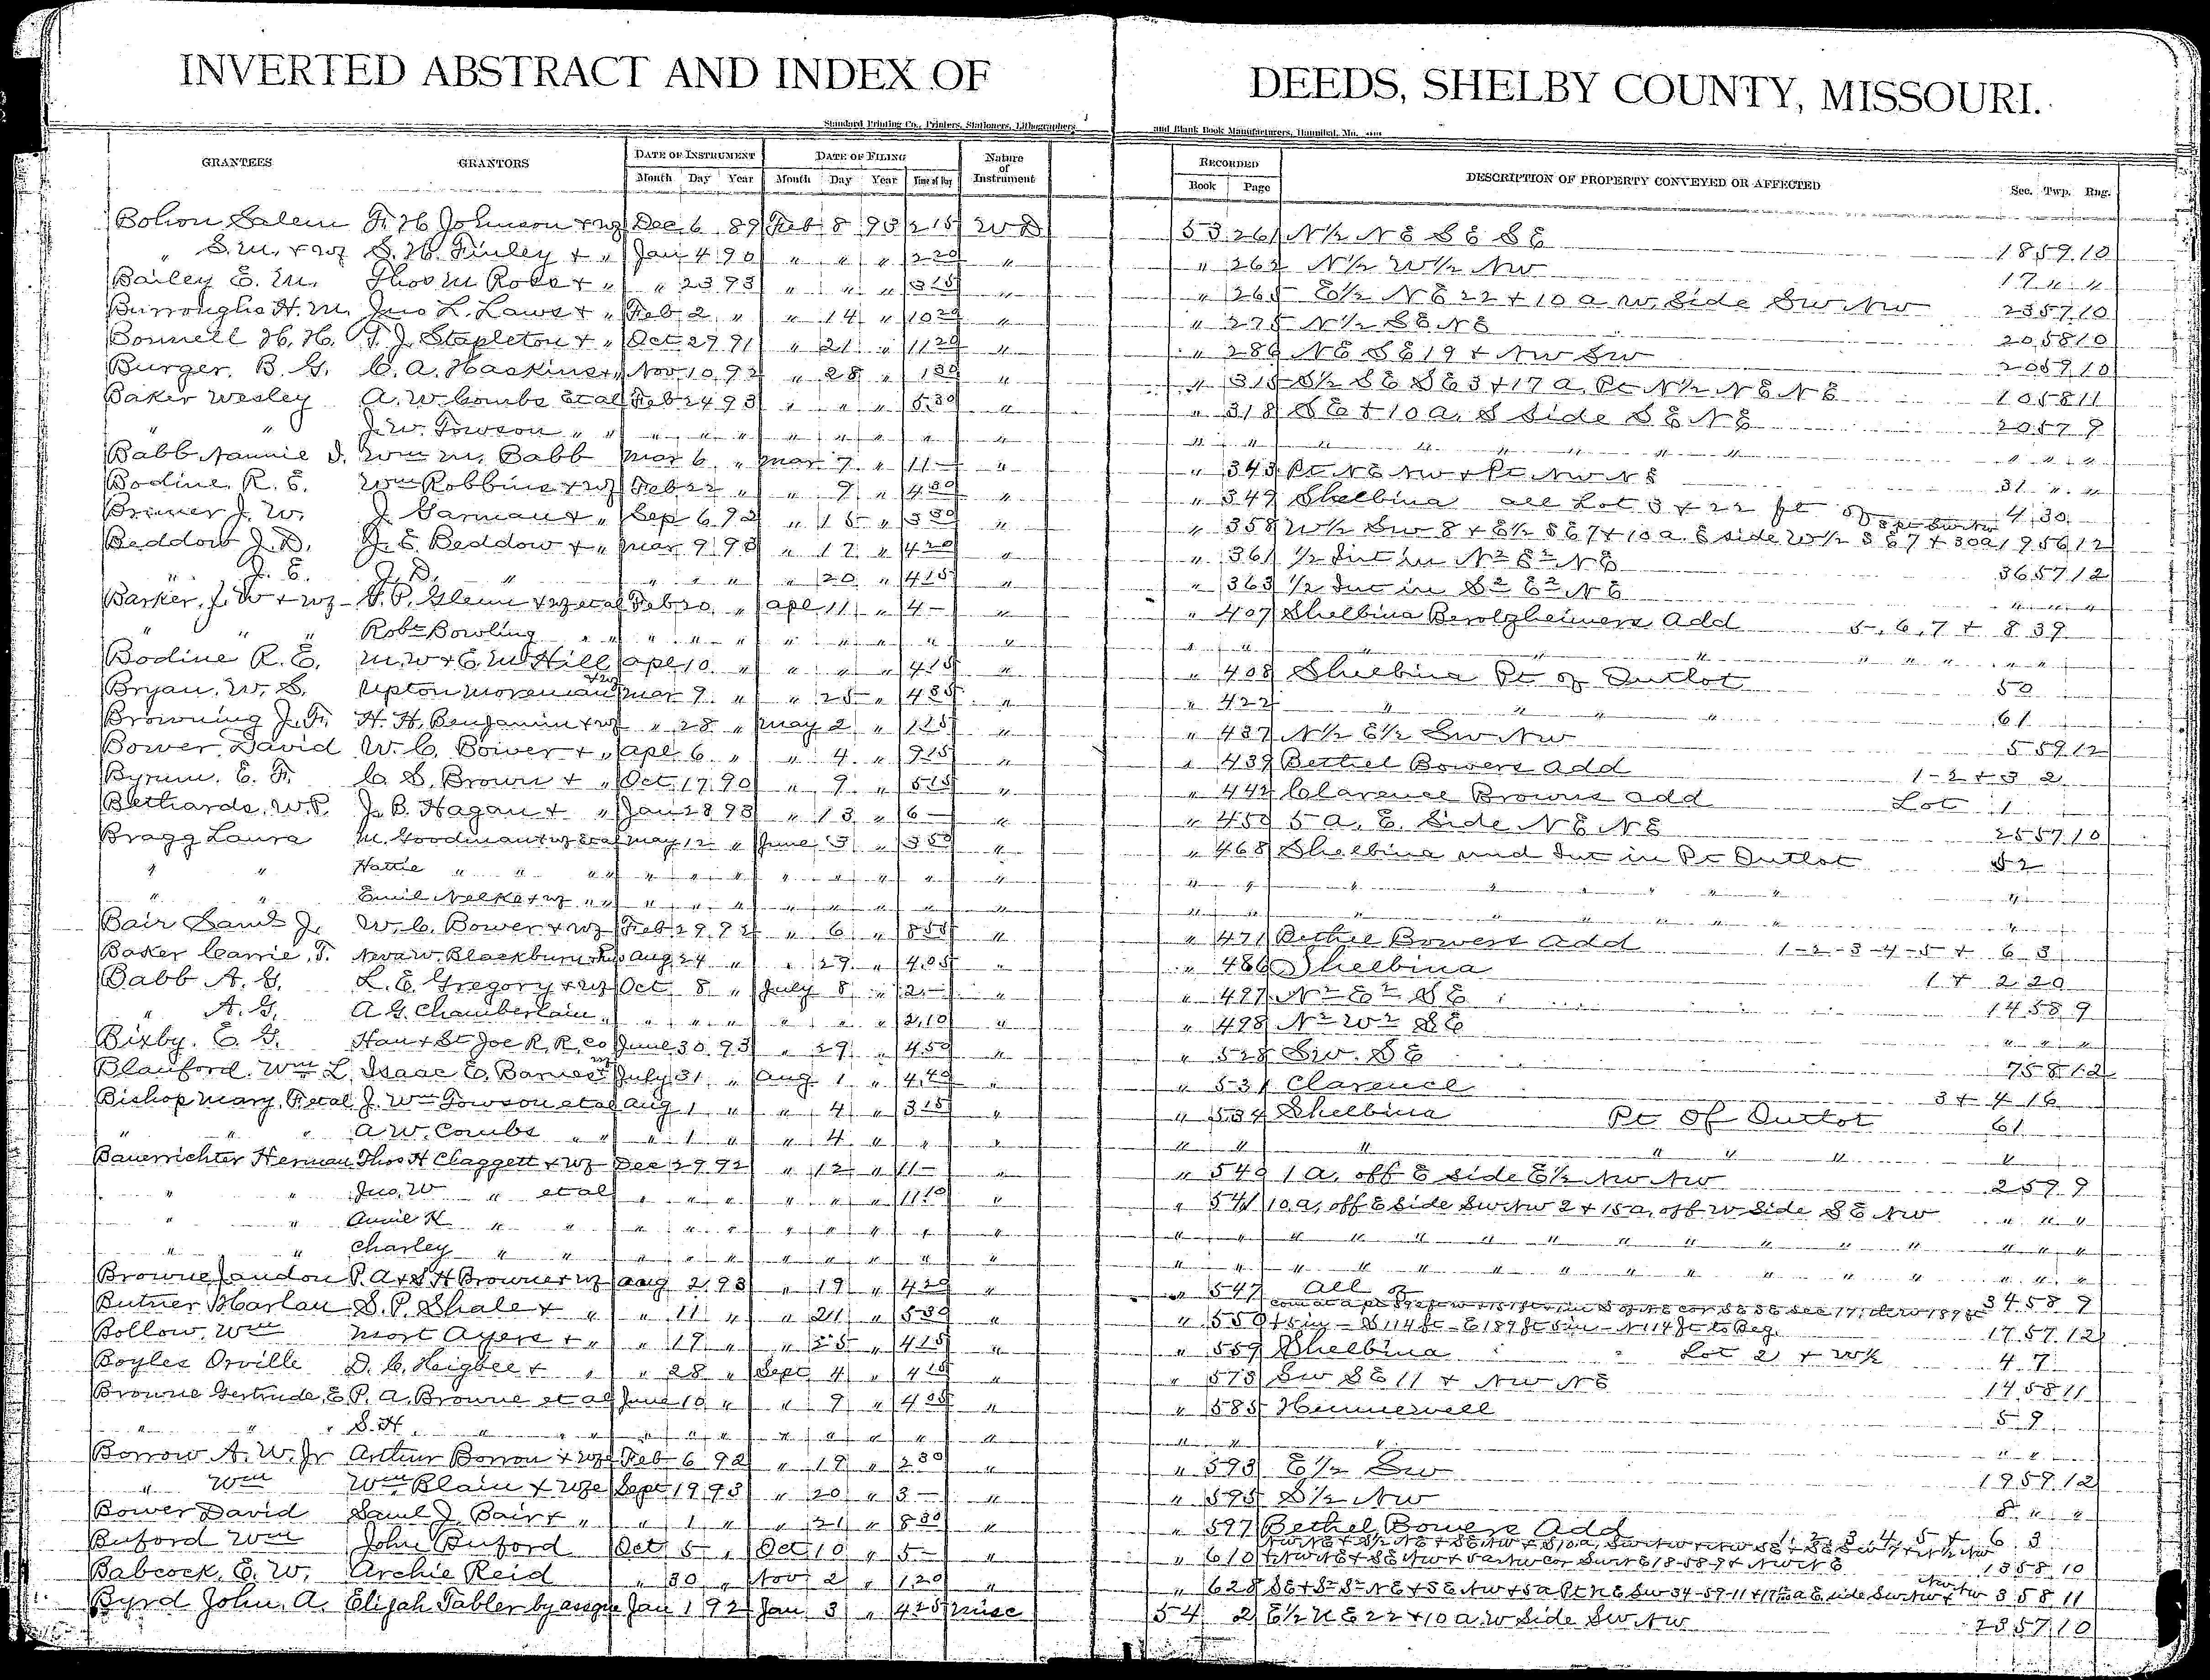 INVERTED ABSTRACT AND INDEX OF DEEDS, SHELBY COUNTY, MISSOURI.
Standard Printing Co., Printers, Stationers, Lithographers and Blank Book Manufacturers, Hannibal, Mo.
GRANTEES GRANTORS DATE OF INSTRUMENT DATE OF FILING Nature of Instrument RECORDED DESCRIPTION OF PROPERTY CONVEYED OR AFFECTED Sec. Twp. Rng.
Month Day Year Month Day Year Time of Day Book Page
Bohon Salem F. H. Johnson & wf Dec 6 89 Feb 8 93 2 15 W D 53 261 N½ N E S E S E 18 59 10
" S. M. & wf S. H. Finley & " Jan 4 90 " " " 2 20 " " 262 N½ W½ NW 17 " "
Bailey E. M. Thos M Ross & " " 23 93 " " " 3 15 " " 265 E½ N E 22 & 10 a W. Side SW NW 23 57 10
Burroughs H. M. Jno L. Laws & " Feb 2 " " 14 " 10 20 " " 275 N½ S E N E 20 58 10
Bonnell H. H. T. J. Stapleton & " Oct 29 91 " 21 " 11 20 " " 286 N E S E 19 & NW SW 20 59 10
Burger, B. G. C. A. Haskins & " Nov 10 92 " 28 " 1 30 " " 315 S½ S E S E 3 & 17 a. Pt N½ N E N E 10 58 11
Baker Wesley A. W. Combs et al Feb 24 93 " " " 5 30 " " 318 S E & 10 a. S Side S E N E 20 57 9
" " J. W. Towson " " " " " " " " " " " " " " " " " " "
Babb Nannie D. Wm M. Babb Mar 6 " Mar 7 " 11 — " " 343 Pt N E NW & Pt NW N E 31 " "
Bodine R. E. Wm Robbins & wf Feb 22 " " 9 " 4 30 " " 349 Shelbina all Lot 3 & 22 ft of 4 30
Brimer J. W. J. Garman & " Sep 6 92 " 15 " 3 30 " " 358 W½ SW 8 & E½ S E 7 & 10 a. E side W½ S E 7 & 30 a 19 56 12
Beddow J. D. J. E. Beddow & " Mar 9 93 " 17 " 4 20 " " 361 ½ Int in N² E² N E 36 57 12
" J. E. J. D. " " " " " 20 " 4 15 " " 363 ½ Int in S² E² N E " " "
Barker, J. W & wf G. P. Glenn & wf et al Feb 20 " Apl 11 " 4 — " " 407 Shelbina Berolzheimers Add 5, 6, 7 & 8 39
" " " Robt Bowling " " " " " " " " " " " " " " " " " "
Bodine R. E. M. W & E. M Hill Apl 10 " " " " 4 15 " " 408 Shelbina Pt of Outlot 50
Bryan, W. S. Upton Moreman & wf Mar 9 " " 25 " 4 35 " " 422 " " " " 61
Browning J. F. H. H. Benjamin & wf " 28 " May 2 " 1 25 " " 437 N½ E½ SW NW 5 59 12
Bower, David W. C. Bower & " Apl 6 " " 4 " 9 15 " " 439 Bethel Bowers Add 1-2 & 3 2
Byrum, E. F. C. S. Brown & " Oct 17 90 " 9 " 5 15 " " 442 Clarence Browns Add Lot 1
Bethards, W. P. J. B. Hagan & " Jan 28 93 " 13 " 6 — " " 450 5 a. E. Side N E N E 25 57 10
Bragg Laura M. Goodman & wf et al May 12 " June 3 " 3 50 " " 468 Shelbina und Int in Pt Outlot 52
" " Hattie " " " " " " " " " " " " " " " " " "
" " Emil Nelke & wf " " " " " " " " " " " " " " " "
Bair Saml J. W. C. Bower & wf Feb 29 92 " 6 " 8 55 " " 471 Bethel Bowers Add 1-2-3-4-5 & 6 3
Baker Carrie, T. Neva W. Blackburn Aug 24 " " 29 " 4 05 " " 486 Shelbina 1 & 2 20
Babb A. G. L. E. Gregory & wf Oct 8 " July 8 " 2 — " " 497 N² E² S E 14 58 9
" A. G. A. G. Chamberlain " " " " " " " 2 10 " " 498 N² W² S E " " "
Bixby. E. G. Han & St Joe R. R. Co June 30 93 " 29 " 4 50 " " 528 SW. S E 7 58 12
Blanford, Wm L. Isaac C. Barnes & wf July 31 " Aug 1 " 4 40 " " 531 Clarence 3 & 4 16
Bishop Mary, F et al J. Wm Towson et al Aug 1 " " 4 " 3 15 " " 534 Shelbina Pt Of Outlot 61
" " " A. W. Combs " " " 1 " " 4 " " " " " " " " " "
Bauerrichter Herman Thos H Claggett & wf Dec 29 92 " 12 " 11 — " 540 1 A. off E side E½ NW NW 2 59 9
" " Jno. W " et al " " " " " " 11 10 " " 541 10 a. off E side SW NW 2 & 15 a. off W side S E NW " " "
" " Annie K " " " " " " " " " " " " " " " " " "
" " Charley " " " " " " " " " " " " " " " " " "
Browne, Landon P. A & S. H Browne & wf Aug 2 93 " 19 " 4 20 " 547 All of 34 58 9
Butner Harlan S. P. Shale & " " 11 " " 21 " 5 30 " " 550 & 5 in — S 114 ft — E 189 ft 5 in — N 114 ft to Beg. 17 57 12
Bollow, Wm Mort Ayers & " " 19 " " 25 " 4 15 " " 559 Shelbina Lot 2 & W½ 4 7
Boyles Orville D. C. Heigbee & " " 28 " Sept 4 " 4 15 " " 573 SW S E 11 & NW N E 14 58 11
Browne Gertrude, E P. A. Browne et al June 10 " " 9 " 4 05 " " 585 Hunnewell 5 9
" " " S. H. " " " " " " " " " " " " " " "
Borrow A. W. Jr Arthur Borron & wfe Feb 6 92 " 19 " 2 30 " " 593 E½ SW 19 59 12
" Wm Wm Blain & wfe Sept 19 93 " 20 " 3 — " " 595 S½ NW 8 " "
Bower David Saml J. Bair & " " 1 " " 21 " 8 30 " 597 Bethel, Bowers Add 1, 2, 3, 4, 5 & 6 3
Buford Wm John Buford Oct 5 " Oct 10 " 5 — " " 610 13 58 10
Babcock, E. W. Archie Reid " 30 " Nov 2 " 1 20 " " 628 S E & S² S² N E & S E NW & 5 a Pt N E SW 34-59-11 3 58 11
Byrd John, A. Elijah Tabler by assgne Jan 1 92 Jan 3 " 4 25 Misc 54 2 E½ N E 22 & 10 a W Side SW NW 23 57 10